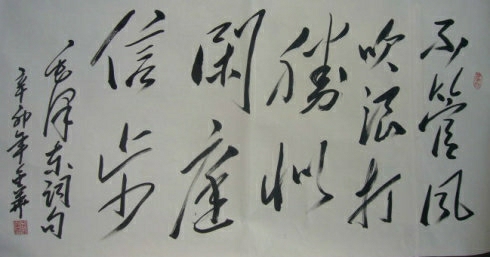 不管风
吹浪打
勝似
闲庭
信步
毛泽东词句
辛卯年